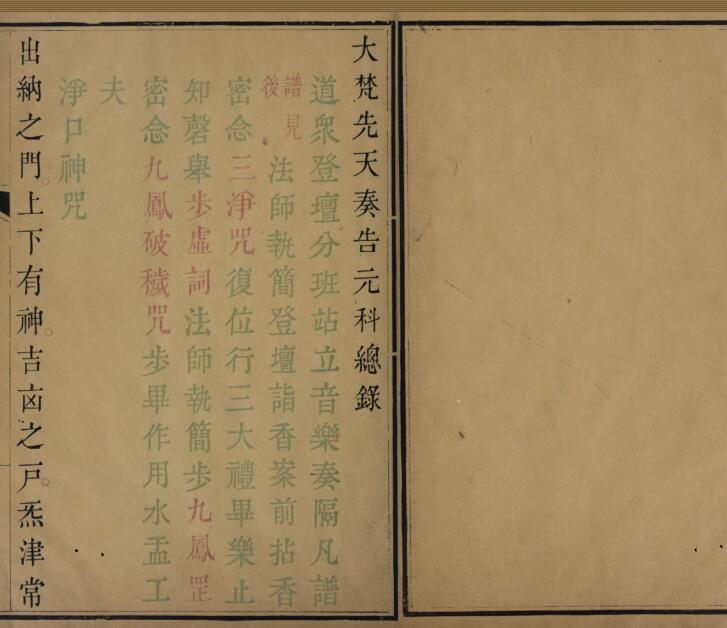 大梵先天奏告元科總錄
道眾登壇分班站立音樂奏隔凡譜
譜見後法師執簡登壇詣香案前拈香
密念三淨咒復位行三大禮畢樂止
知磬舉步虛詞法師執簡步九鳳罡
密念九鳳破穢咒步畢作用水盂工
夫
淨口神咒
出納之門。上下有神。吉凶之戶。炁津常